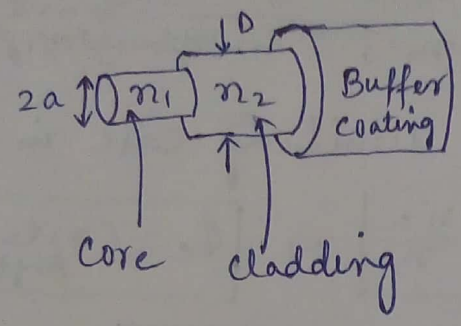 D
2a
n₁
n₂
Buffer
coating
Core
cladding